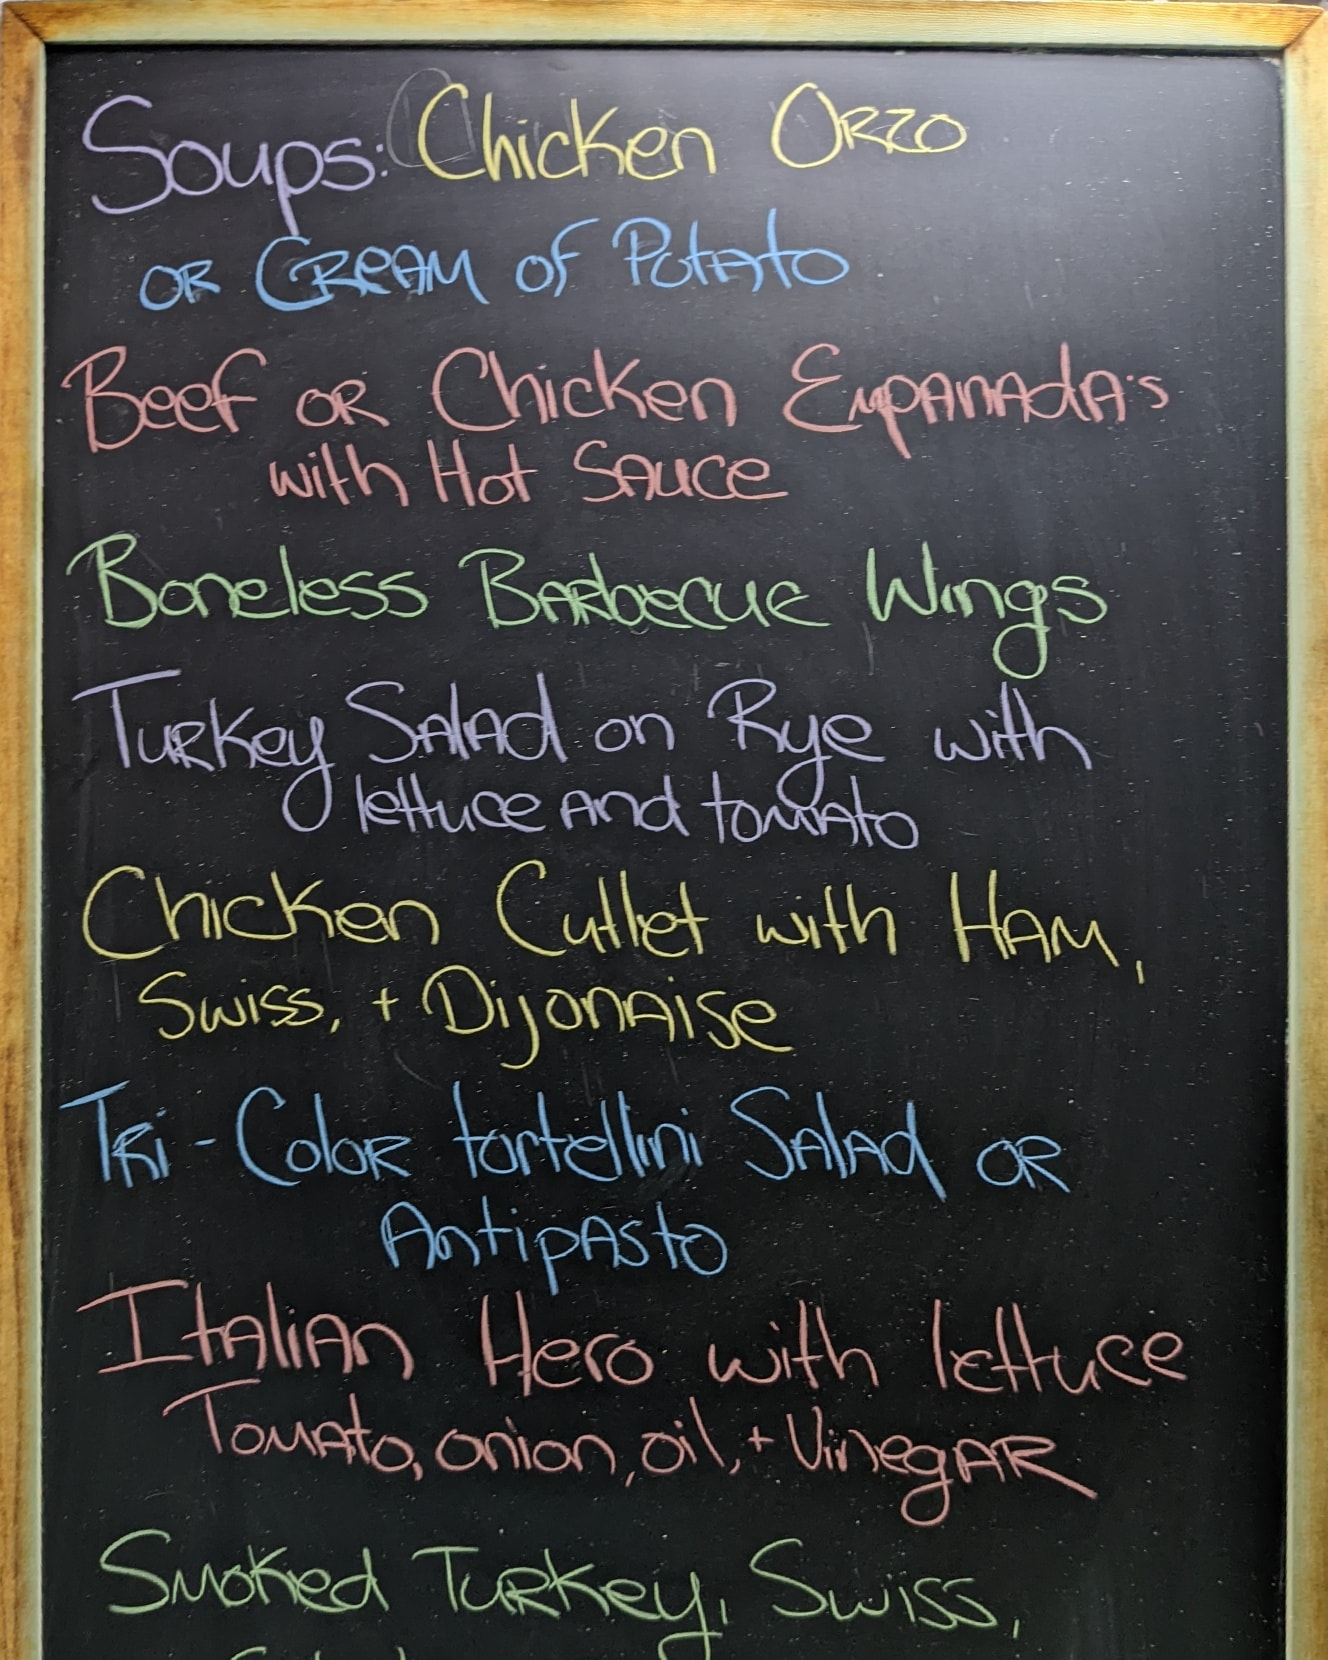 Soups: Chicken Orzo
or Cream of Potato
Beef or Chicken Empanada's
with Hot Sauce
Boneless Barbecue Wings
Turkey Salad on Rye with
lettuce and tomato
Chicken Cutlet with Ham,
Swiss, + Dijonaise
Tri-Color tortellini Salad or
Antipasto
Italian Hero with lettuce
Tomato, onion, oil, + Vinegar
Smoked Turkey, Swiss,